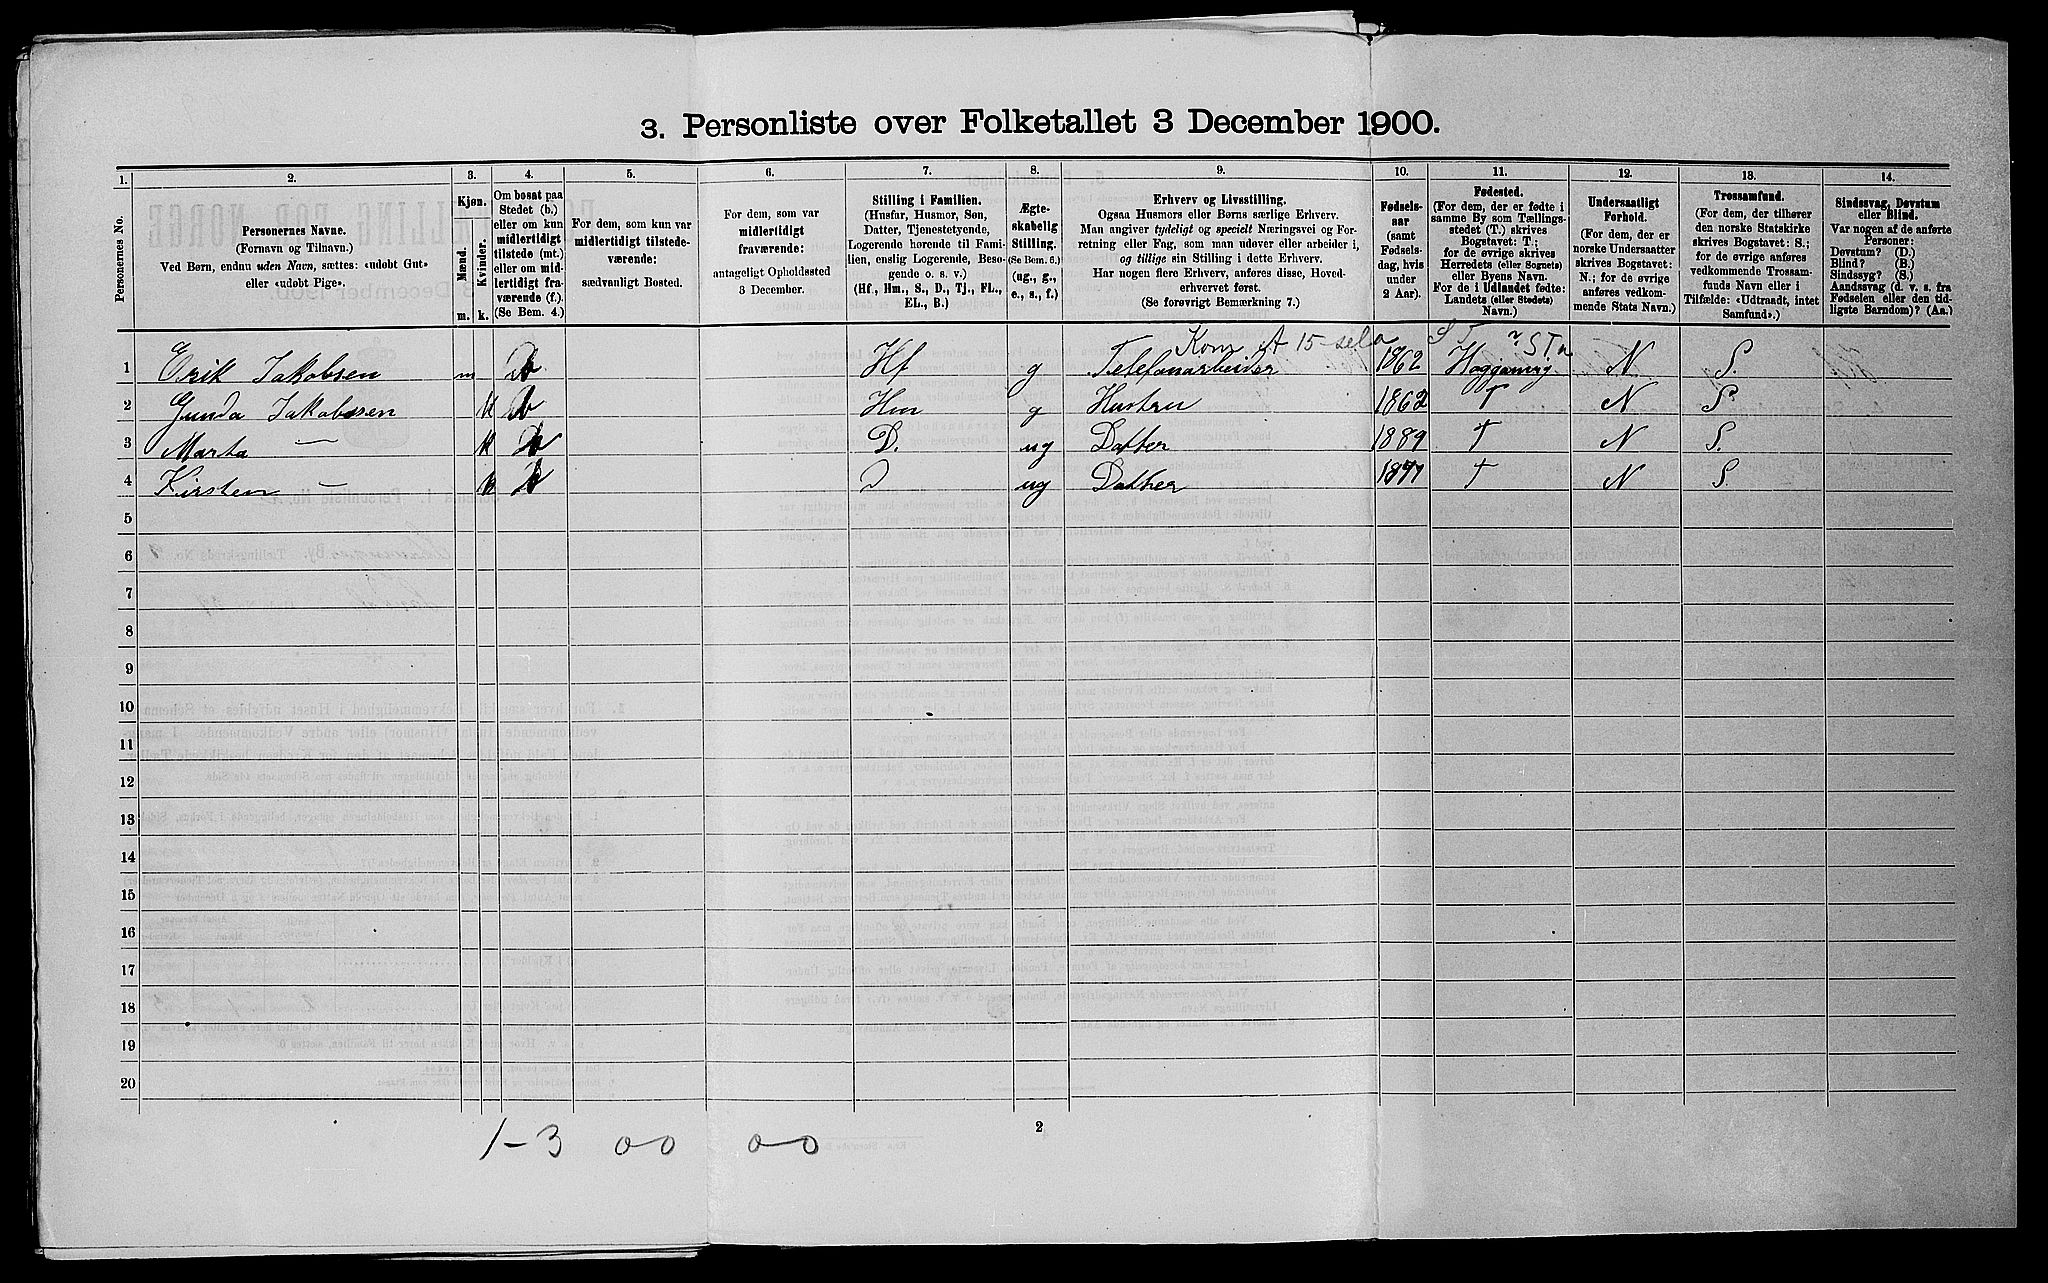 3. Personliste over Folketallet 3 December 1900.
1. 2. 3. 4. 5. 6. 7. 8. 9. 10. 11. 12. 13. 14.
Personernes No.
Personernes Navne.
(Fornavn og Tilnavn.)
Ved Børn, endnu uden Navn, sættes: «udøbt Gut»
eller «udøbt Pige».
Kjøn.
Mænd.
Kvinder.
m. k.
Om bosat paa
Stedet (b.)
eller om kun
midlertidigt
tilstede (mt.)
eller om mid-
lertidigt fra-
værende (f.).
(Se Bem. 4.)
For dem, som kun var
midlertidigt tilstede-
værende:
sædvanligt Bosted.
For dem, som var
midlertidigt
fraværende:
antageligt Opholdssted
3 December.
Stilling i Familien.
(Husfar, Husmor, Søn,
Datter, Tjenestetyende,
Logerende hørende til Fami-
lien, enslig Logerende, Besø-
gende o. s. v.)
(Hf., Hm., S., D., Tj., FL.,
EL., B.)
Ægte-
skabelig
Stilling.
(Se Bem. 6.)
(ug., g.,
e., s., f.)
Erhverv og Livsstilling.
Ogsaa Husmors eller Børns særlige Erhverv.
Man angiver tydeligt og specielt Næringsvei og For-
retning eller Fag, som man udøver eller arbeider i,
og tillige sin Stilling i dette Erhverv.
Har nogen flere Erhverv, anføres disse, Hoved-
erhvervet først.
(Se forøvrigt Bemærkning 7.)
Fødsels-
aar
(samt
Fødsels-
dag, hvis
under
2 Aar).
Fødested.
(For dem, der er fødte i
samme By som Tællings-
stedet (T.) skrives
Bogstavet: T.;
for de øvrige skrives
Herredets (eller Sognets)
eller Byens Navn.
For de i Udlandet fødte:
Landets (eller Stedets)
Navn.)
Undersaatligt
Forhold.
(For dem, der er
norske Undersaatter
skrives Bogstavet:
N.; for de øvrige
anføres vedkom-
mende Stats Navn.)
Trossamfund.
(For dem, der tilhører
den norske Statskirke
skrives Bogstavet: S.;
for de øvrige anføres
vedkommende Trossam-
funds Navn eller i
Tilfælde: «Udtraadt, intet
Samfund».)
Sindssvag, Døvstum
eller Blind.
Var nogen af de anførte
Personer:
Døvstum? (D.)
Blind? (B.)
Sindssyg? (S.)
Aandssvag (d. v. s. fra
Fødselen eller den tid-
ligste Barndom)? (Aa.)
Kom A 15 sela
1 Erik Jakobsen m b Hf g Telefonarbeider 1862 N S.
2 Gunda Jakobsen k b Hm g Hustru 1862 T N S
3 Marta — k b D. ug Datter 1889 T N S.
4 Kirsten — k b D ug Datter T N S.
5
6
7
8
9
10
11
12
13
14
15
16
17
18
19
20
1-3 00 00
2